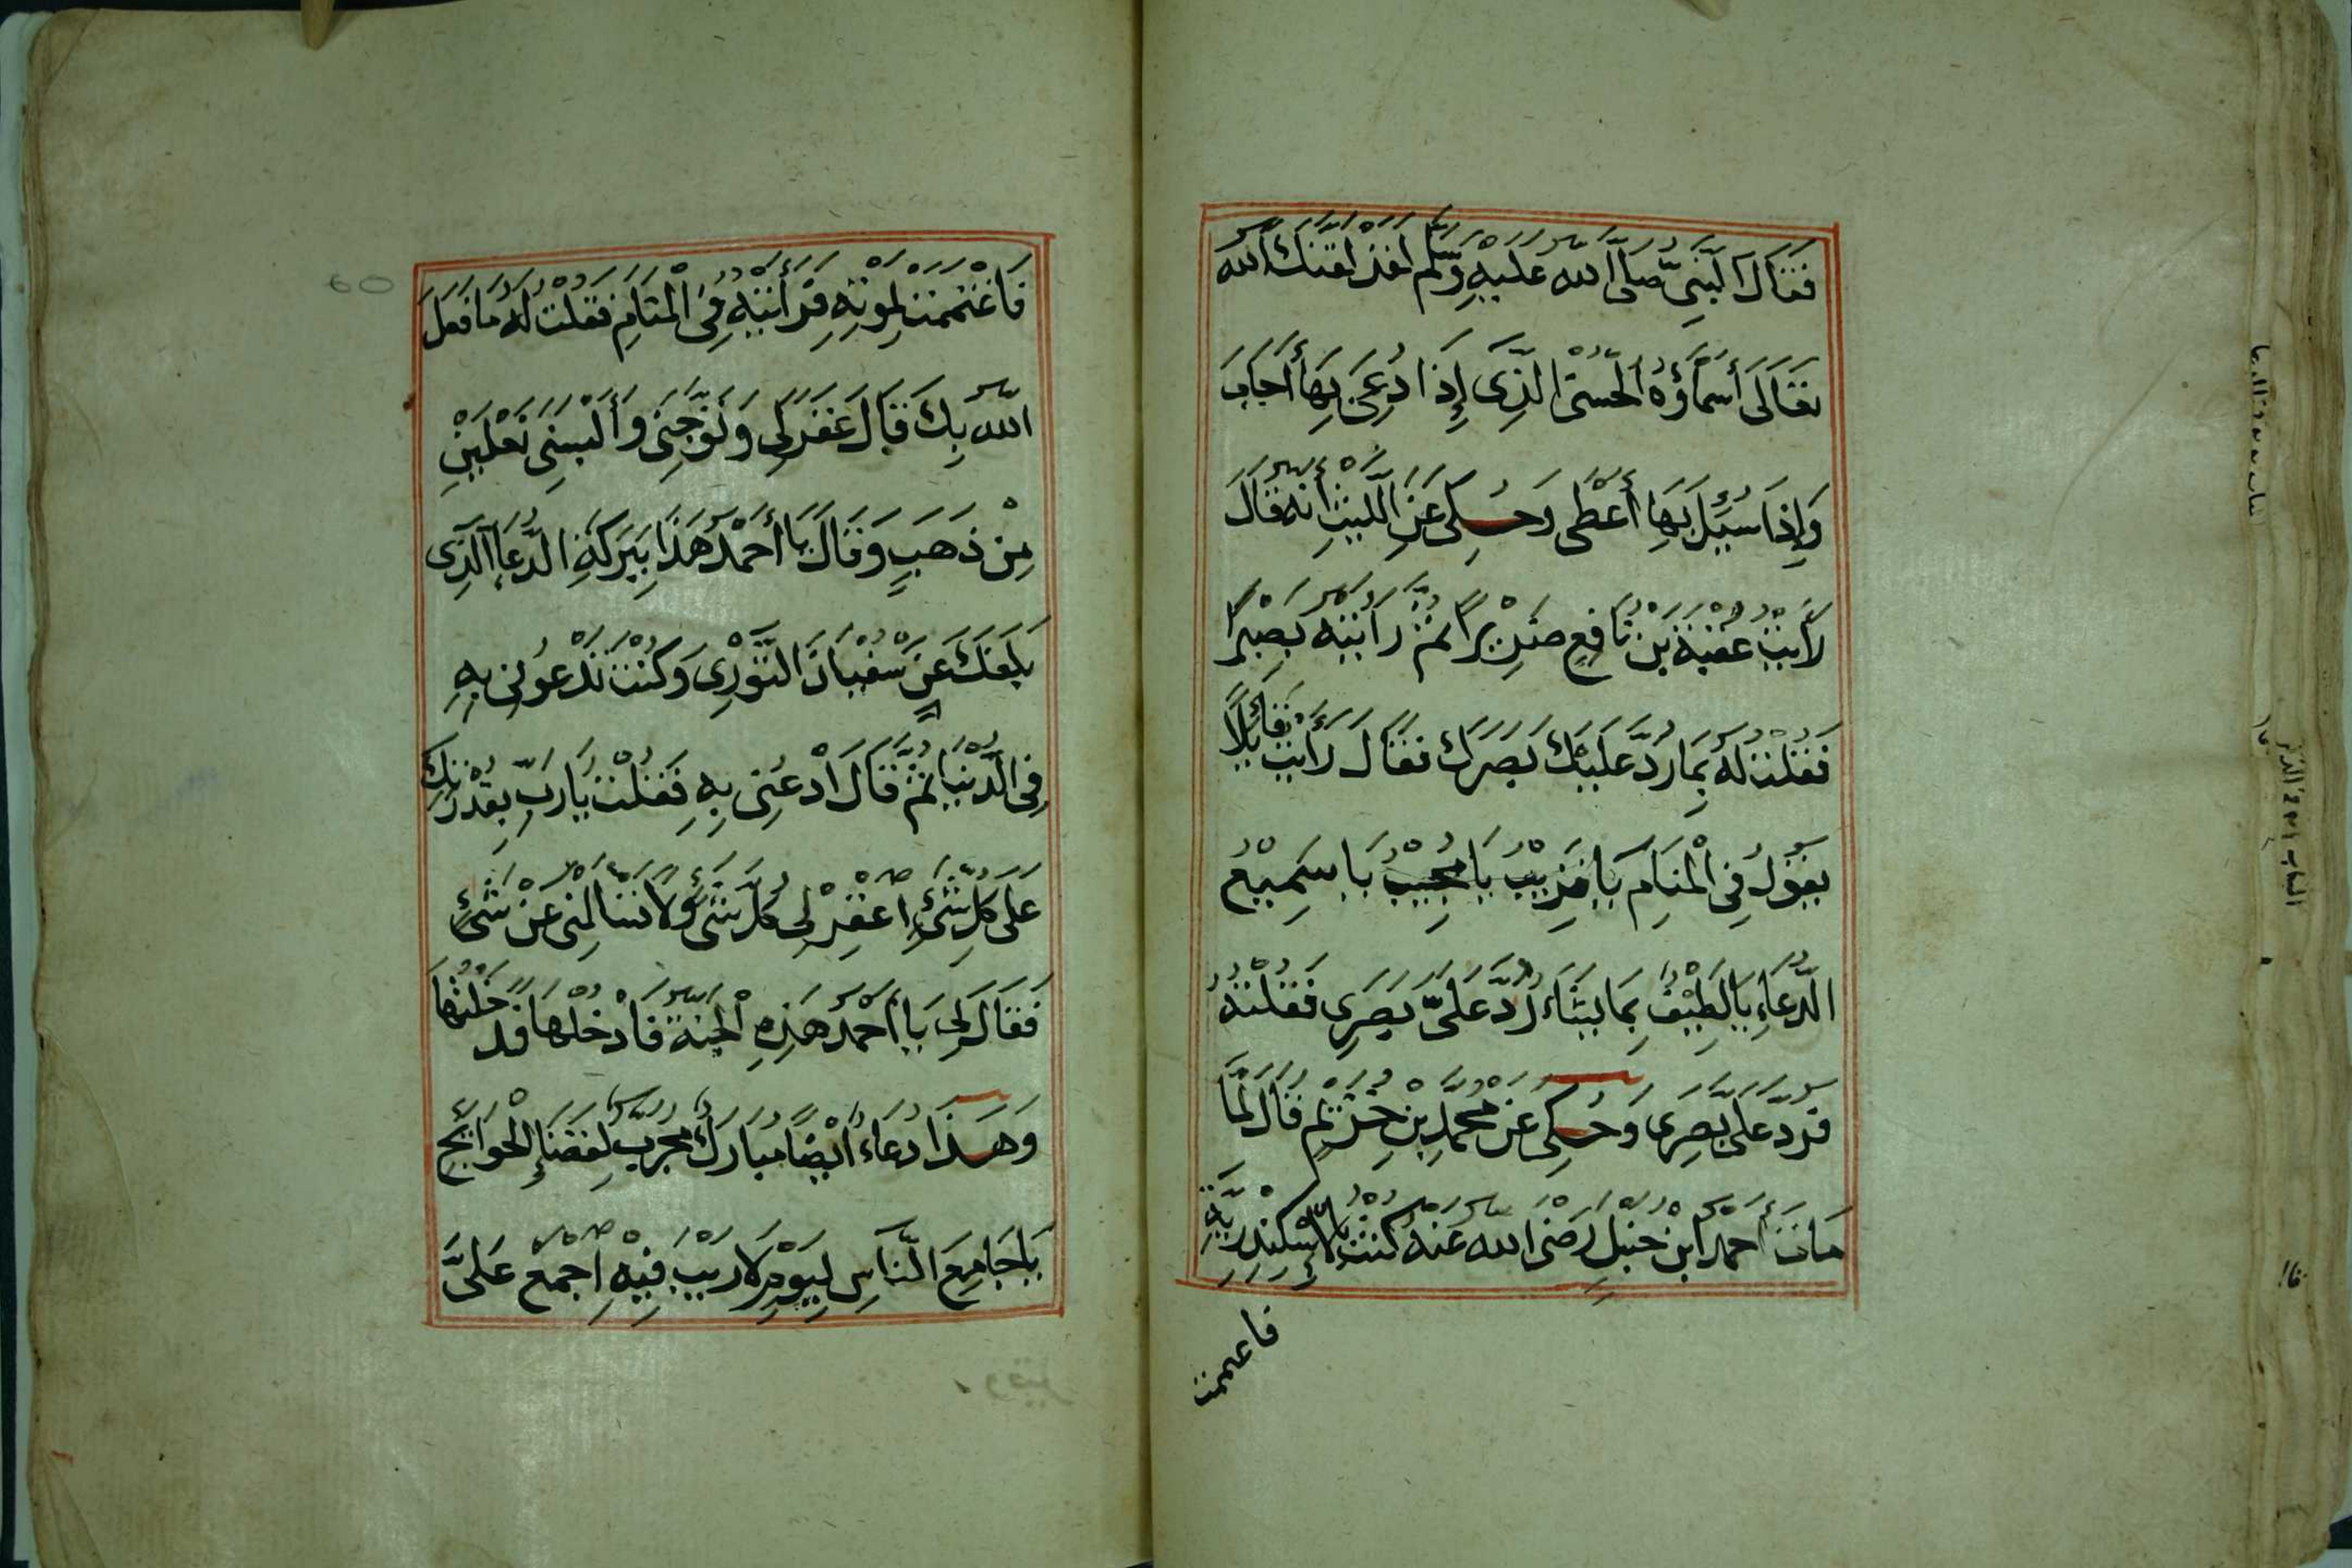 فَقَالَ النَّبِيُّ صَلَّى اللّٰه عَلَيْهِ وَسَلَّمَ لَقَدْ لَقَّنَكَ اللّٰه
تَعَالَى أَسْمَاؤُهُ الْحُسْنَى الَّذِي إِذَا دُعِيَ بِهَا أَجَابَ
وَإِذَا سُئِلَ بِهَا أَعْطَى وَحُكِيَ عَنِ اللَّيْثِ أَنَّهُ قَالَ
رَأَيْتُ عُقْبَةَ بْنَ نَافِعٍ ضَرِيْرًا ثُمَّ رَأَيْتُهُ بَصِيْرًا
فَقُلْتُ لَهُ بِمَا رُدَّ عَلَيْكَ بَصَرُكَ فَقَالَ رَأَيْتُ قَائِلًا
يَقُولُ فِي الْمَنَامِ يَا قَرِيْبُ يَا مُجِيْبُ يَا سَمِيْعُ
الدُّعَاءِ يَا لَطِيْفُ بِمَا يَشَاءُ رُدَّ عَلَيَّ بَصَرِي فَقُلْتُهُ
فَرَدَّ عَلَيَّ بَصَرِي وَحُكِيَ عَنْ مُحَمَّدِ بْنِ خُزَيْمٍ قَالَ لَمَّا
مَاتَ أَحْمَدُ ابْنُ حَنْبَلٍ رَضِيَ اللّٰه عَنْهُ كُنْتُ بِالْإِسْكَنْدَرِيَّةِ
فاغتممت
فَاغْتَمَمْتُ لِمَوْتِهِ فَرَأَيْتُهُ فِي الْمَنَامِ فَقُلْتُ لَهُ مَا فَعَلَ
اللّٰه بِكَ فَقَالَ غَفَرَ لِي وَتَوَّجَنِي وَأَلْبَسَنِي نَعْلَيْنِ
مِنْ ذَهَبٍ وَقَالَ يَا أَحْمَدُ هَذَا بِبَرَكَةِ الدُّعَاءِ الَّذِي
بَلَغَكَ عَنْ سُفْيَانَ الثَّوْرِي وَكُنْتَ تَدْعُونِي بِهِ
فِي الدُّنْيَا ثُمَّ قَالَ ادْعُنِي بِهِ فَقُلْتُ يَا رَبِّ بِقُدْرَتِكَ
عَلَى كُلِّ شَيْءٍ اغْفِرْ لِي كُلَّ شَيْءٍ وَلَا تَسْأَلْنِي عَنْ شَيْءٍ
فَقَالَ لِي يَا أَحْمَدُ هَذِهِ الْجَنَّةُ فَادْخُلْهَا فَدَخَلْتُهَا
وَهَذَا دُعَاءٌ أَيْضًا مُبَارَكٌ مُجَرَّبٌ لِقَضَاءِ الْحَوَائِجِ
يَا جَامِعَ النَّاسِ لِيَوْمٍ لَا رَيْبَ فِيْهِ اجْمَعْ عَلَيَّ